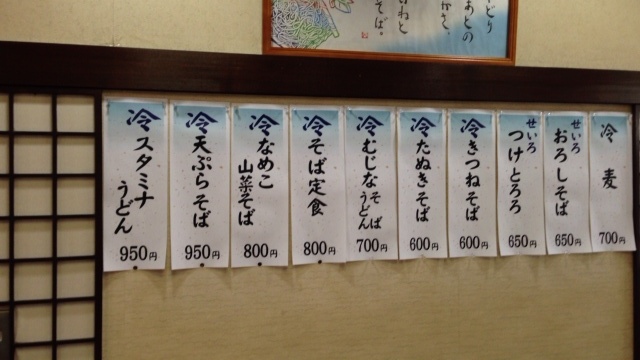 どり
あとの
かさ、
いねと
そば。
冷麦
700円
せいろ
おろしそば
650円
せいろ
つけとろろ
650円
冷きつねそば
600円
冷たぬきそば
600円
冷むじなそば
うどん
700円
冷そば定食
800円
冷なめこ
山菜そば
800円
冷天ぷらそば
950円
冷スタミナ
うどん
950円